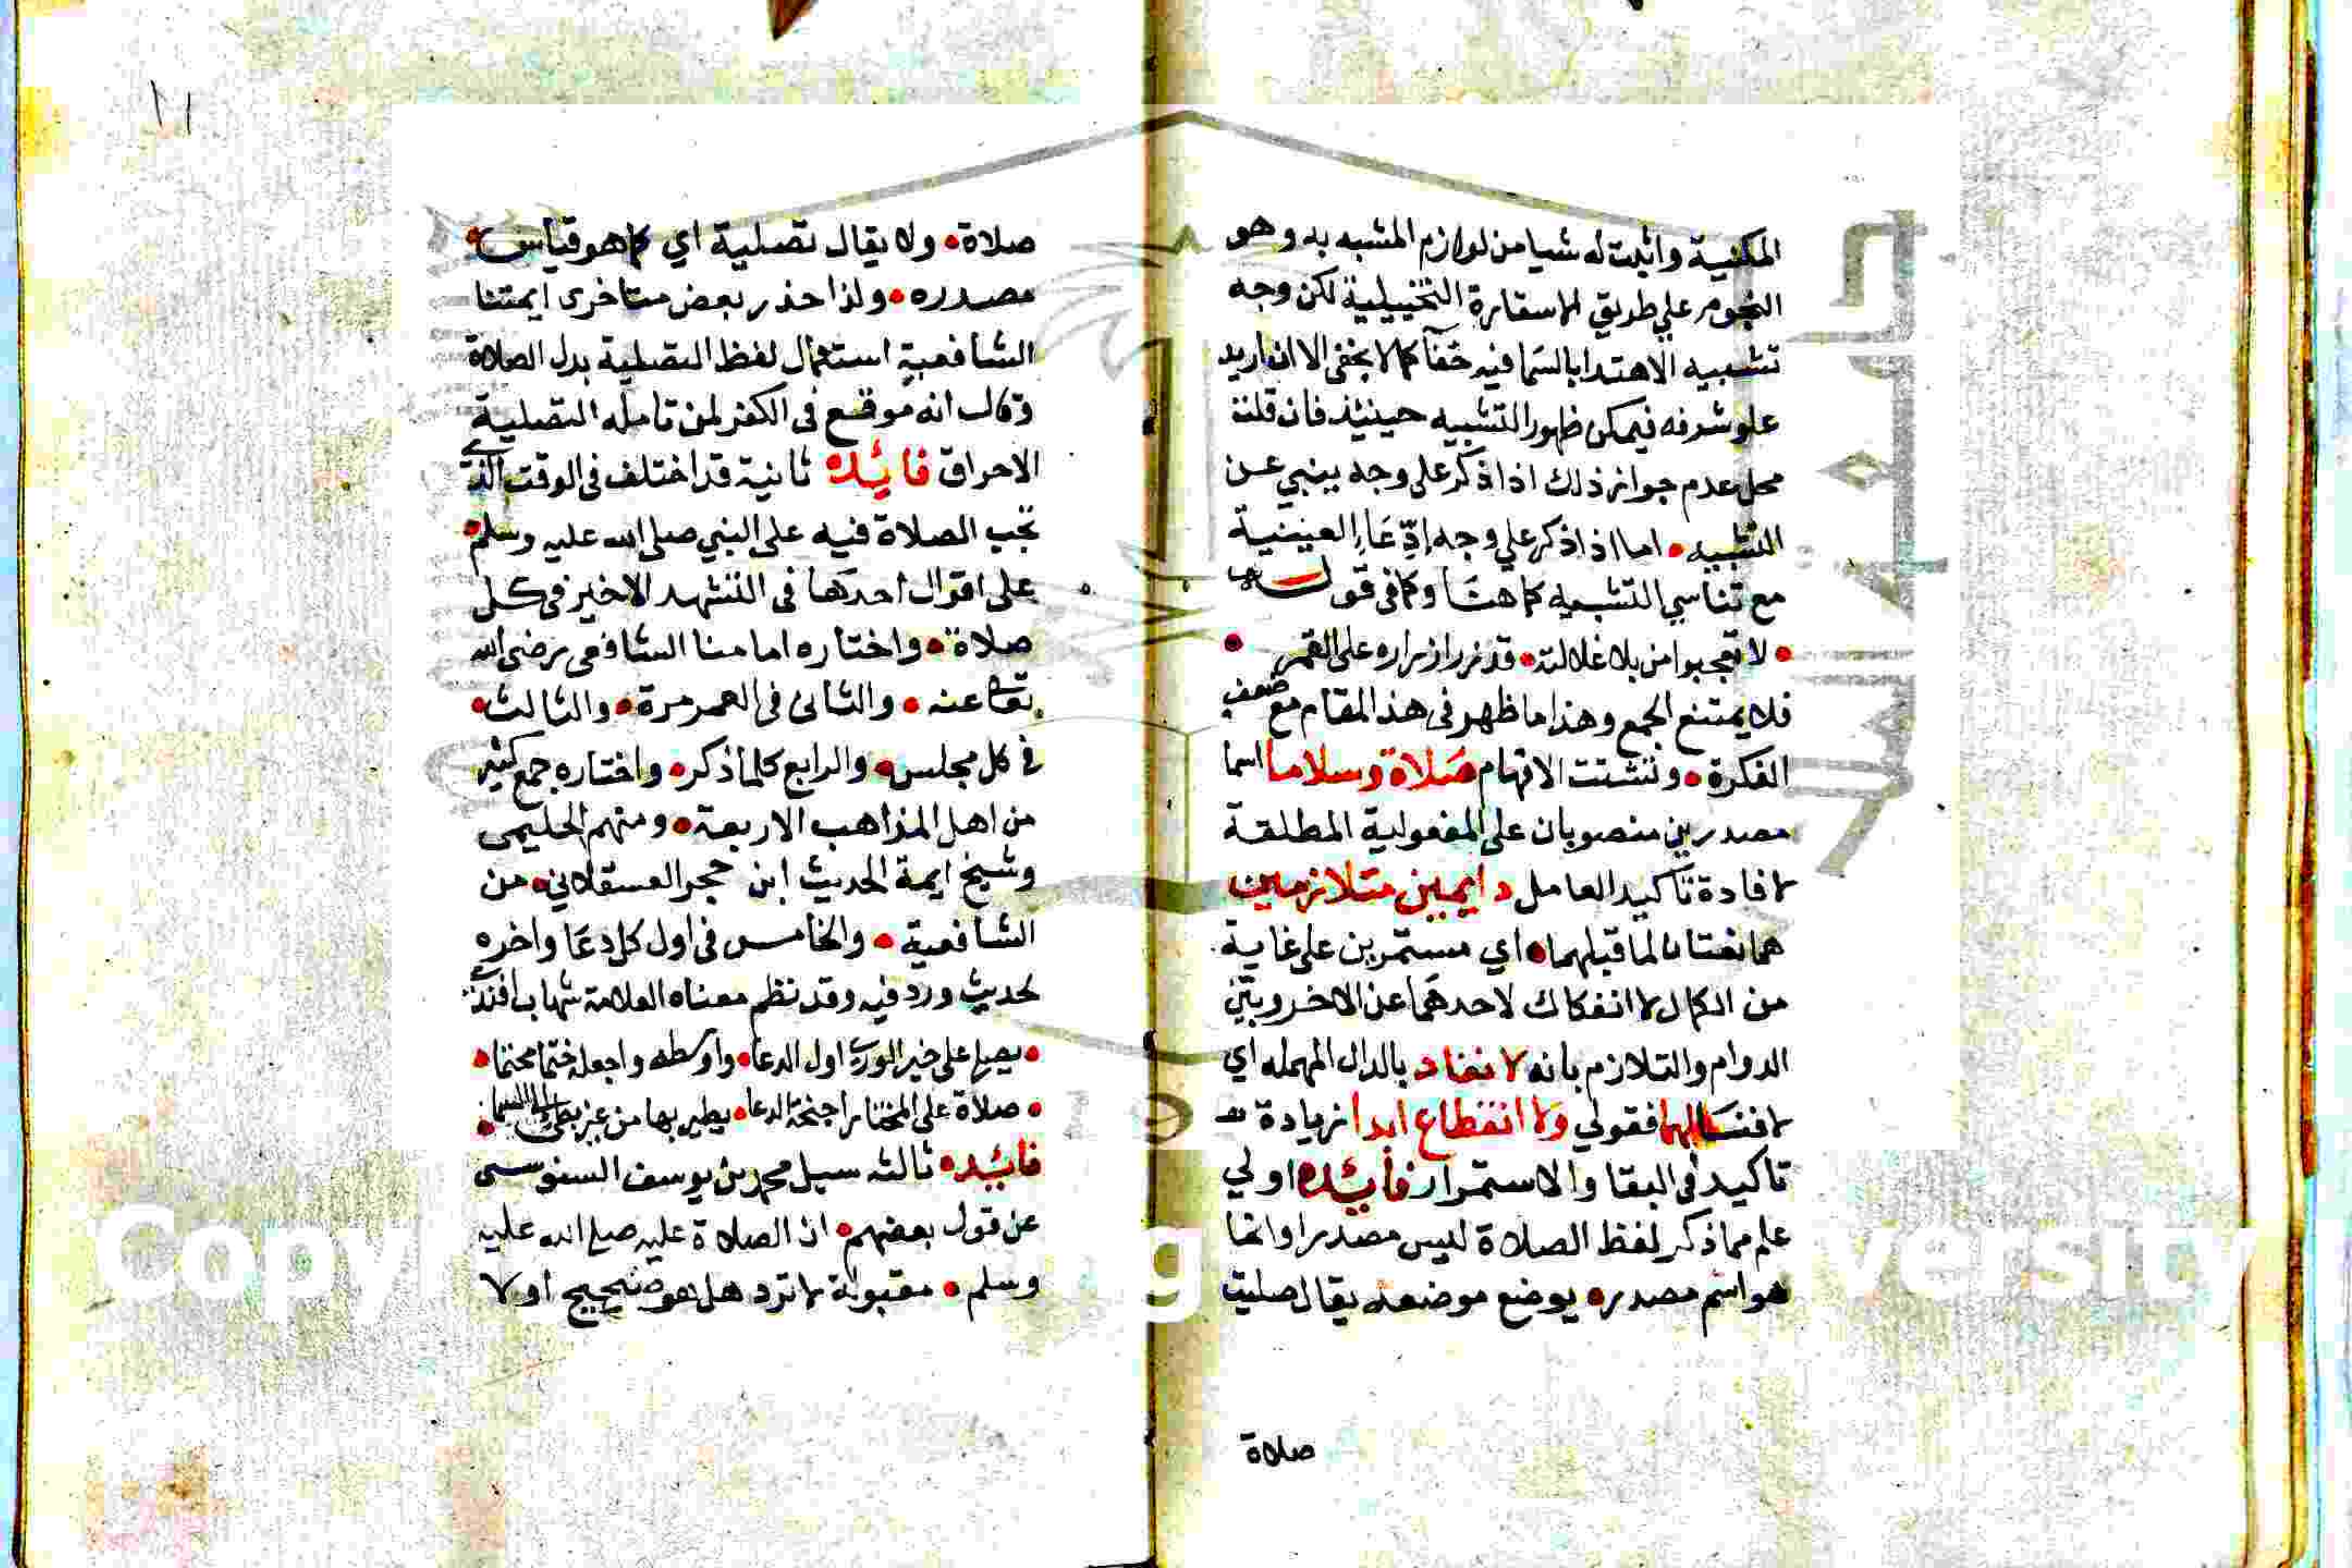 المكنية واثبت له شيا من لوازم المشبه به وهو
النجوم على طريق الاستعارة التخييلية لكن وجه
تشبيه الاهتدا بالسما فيه خفآ كما لا يخفى الا ان اريد
علو شرفه فيمكن ظهور التشبيه حينئذ فان قلت
محل عدم جواز ذلك اذا ذكر على وجه ينبي عن
التشبيه • اما اذا ذكر علي وجه إدِّعَاءِ العينية
مع تناسي التشبيه كما هنا وكما في قوله
• لا تعجبوا من بلا غلالته • قد زر ازراره على القمر •
فلا يمتنع الجمع وهذا ما ظهر في هذا المقام مع ضعف
الفكرة • وتشتت الافهام صَلاة وسلاما اسما
مصدرين منصوبان على المفعولية المطلقة
لافادة تاكيد العامل دايمين متلازمين
هما نعتان لما قبلهما • اي مستمرين على غاية
من الكمال لا انفكاك لاحدهما عن الاخر وبيّن
الدوام والتلازم بانه لا نفاد بالدال المهمله اي
لا فنا لهما فقولي ولا انقطاع ابدا زيادة
تاكيد في البقا والاستمرار فائده اولي
علم مما ذكر لفظ الصلاة ليس مصدرا وانما
هو اسم مصدر • يوضع موضعه يقال صليت
صلاة
١١
صلاة • ولا يقال تصلية اي كما هو قياس •
مصدره • ولذا حذر بعض متاخرى ايمتنا
الشافعية استعمال لفظ التصلية بدل الصلاة
وقال انه موقع فى الكفر لمن تامله التصلية
الاحراق فائدة ثانية قد اختلف فى الوقت الذي
تجب الصلاة فيه على النبي صلى الله عليه وسلم •
على اقوال احدها فى التشهد الاخير فى كل
صلاة • واختاره امامنا الشافعى رضى الله
تعا عنه • والثانى فى العمر مرة • والثالث •
في كل مجلس • والرابع كلما ذكر • واختاره جمع كثير
من اهل المذاهب الاربعة • ومنهم الحليمى
وشيخ ايمة الحديث ابن حجر العسقلاني • من
الشافعية • والخامس فى اول كل دعَا واخره
لحديث ورد فيه وقد نظم معناه العلامة شهاب افندي
• يصلي على خير الورى اول الدعا • واوسطه واجعله ختما مختما •
• صلاة على المختار اجنحة الدعا • يطير بها من عز يعلى الى السما •
فائده • ثالثه سيل محمد بن يوسف السنوسى
عن قول بعضهم • ان الصلاة عليه صلى الله عليه
وسلم • مقبولة لا ترد هل هو صحيح او لا